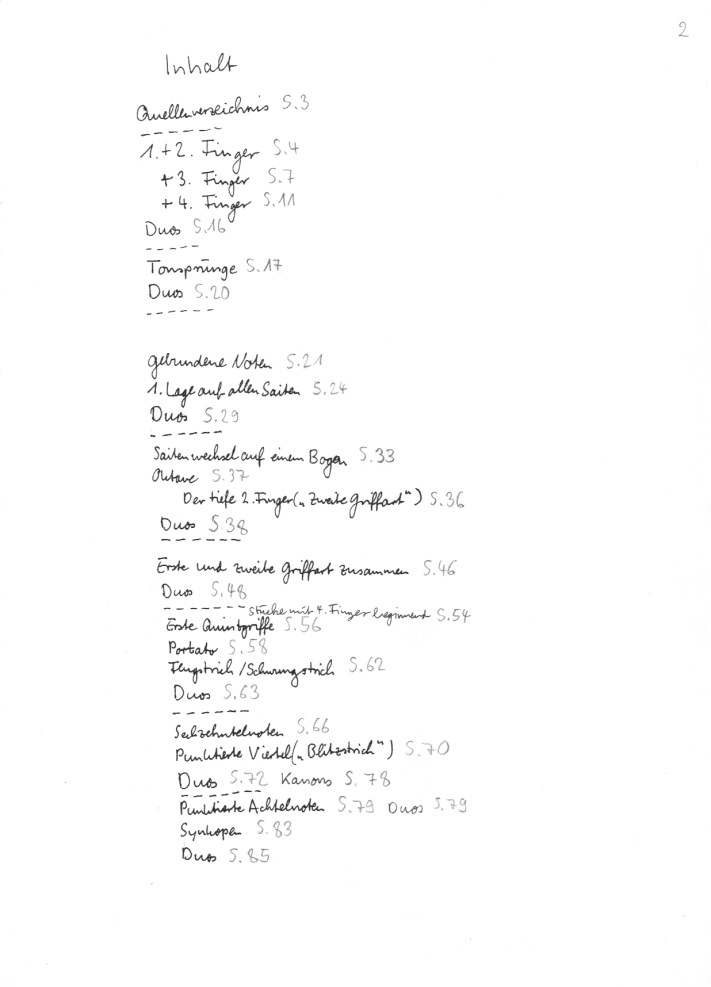 2
Inhalt
Quellenverzeichnis S.3
1.+2. Finger S.4
+3. Finger S.7
+4. Finger S.11
Duos S.16
Tonsprünge S.17
Duos S.20
gebundene Noten S.21
1. Lage auf allen Saiten S.24
Duos S.29
Saitenwechsel auf einem Bogen S.33
Oktave S.37
Der tiefe 2. Finger („Zweite Griffart") S.36
Duos S.38
Erste und zweite Griffart zusammen S.46
Duos S.48
Stücke mit 4. Finger beginnend S.54
Erste Quintgriffe S.56
Portato S.58
Flugstrich/Schwungstrich S.62
Duos S.63
Sechzehntelnoten S.66
Punktierte Viertel („Blitzstrich") S.70
Duos S.72 Kanons S.78
Punktierte Achtelnoten S.79 Duos S.79
Synkopen S.83
Duos S.85